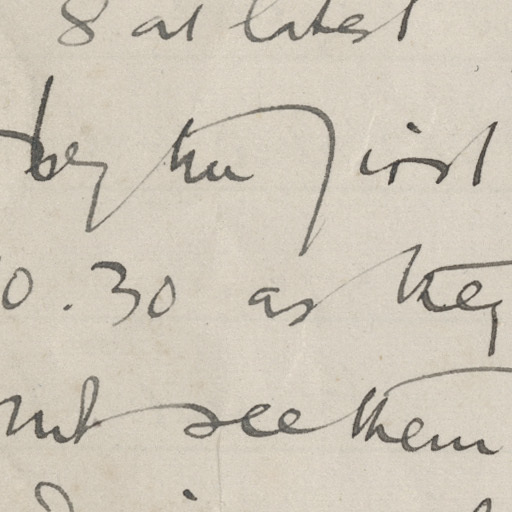 8 at latest
by the first
10.30 as they
see them